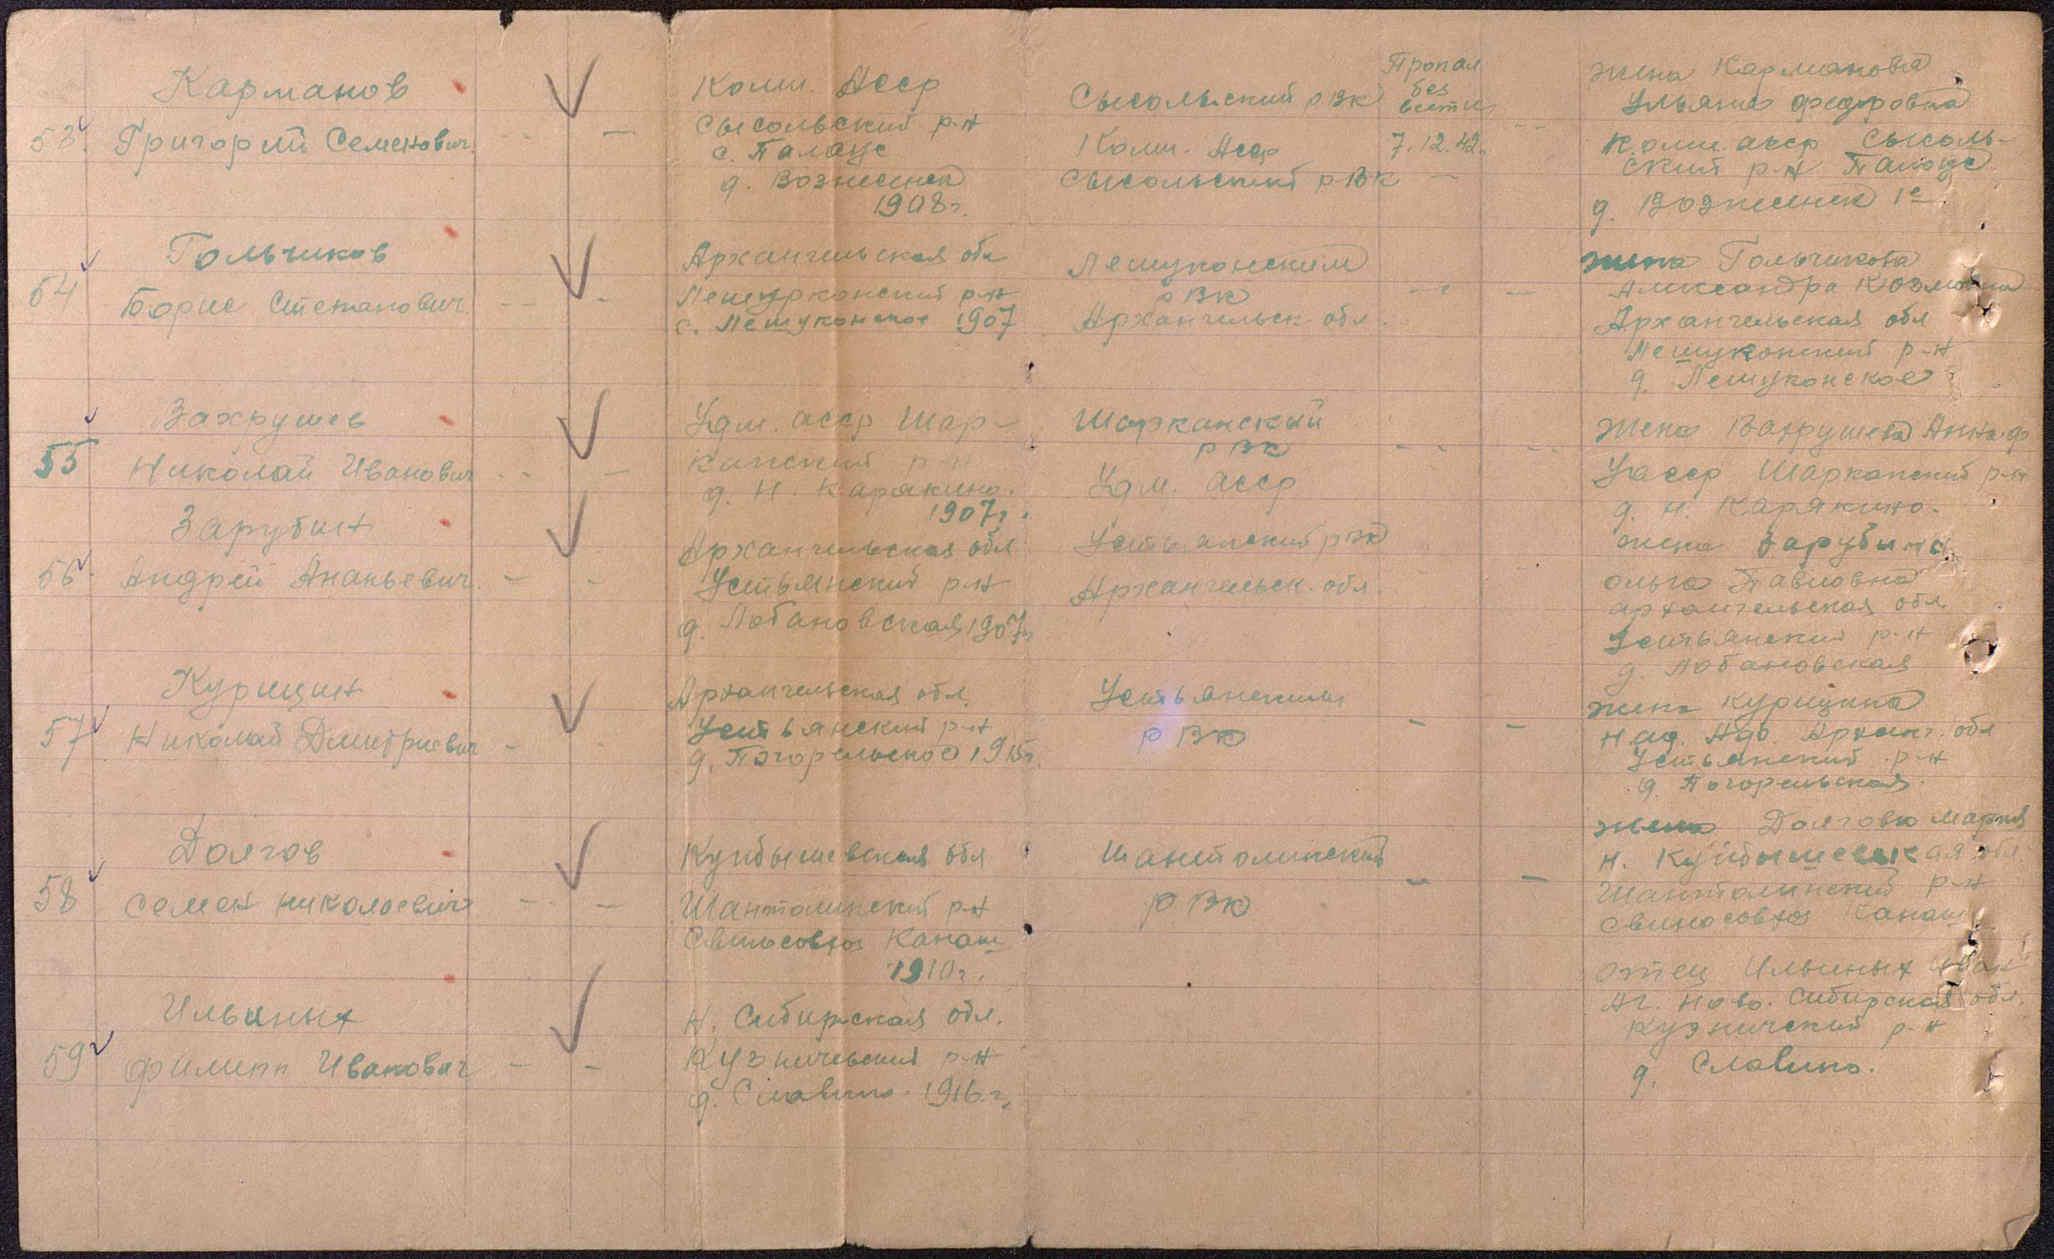 53. Карманов
Григорий Семенович - - -
Коми. Асср
Сысольский р-н
с. Палаус
д. Вознесенск
1908 г.
Сысольский рвк
Коми. Асср
Сысольский рвк
Пропал
без
вести
7.12.42.
жена Карманова
Ульяна Федоровна
Коми. асср Сысоль-
ский р-н Палаус
д. Вознесенск 1е
54 Гольчиков
Борис Степанович - - -
Архангельская обл
Лешуконский р-н
с. Лешуконское 1907
Лешуконским
рвк
Архангельск обл.
жена Гольчикова
Александра
Архангельская обл
Лешуконский р-н
д. Лешуконское
55 Вахрушев
Николай Иванович - - -
Удм. асср Шар-
канский р-н
д. Н. Карякино.
1907 г.
Шарканский
рвк
Удм. асср
жена Вахрушева Анна ф
Уасср Шарканский р-н
д. Н. Карякино.
56. Зарубин
Андрей Ананьевич. - -
Архангельская обл
Устьянский р-н
д. Лобановская 1907г
Устьянский рвк
Архангельск. обл.
жена Зарубина
Ольга Павловна
архангельская обл
Устьянский р-н
д. Лобановская
57 Курицин
Николай Дмитриевич -
Архангельская обл.
Устьянский р-н
д. Погорельское 1915г.
Устьянским
рвк
жена Курицина
Архан. обл
Устьянский р-н
д. Погорельская.
58 Долгов
Семен Николаевич - - -
Куйбышевская обл
Шанталинский р-н
Свиносовхоз Канаш
1910 г.
Шанталинский
рвк
жена Долгова Мария
н. Куйбышевская обл
Шанталинский р-н
Свиносовхоз Канаш
59 Ильиных
Филипп Иванович - -
Н. Сибирская обл.
р-н
д. Славино 1916 г.
отец Ильиных Иван
Ново. Сибирская обл.
р-н
д. Славино.